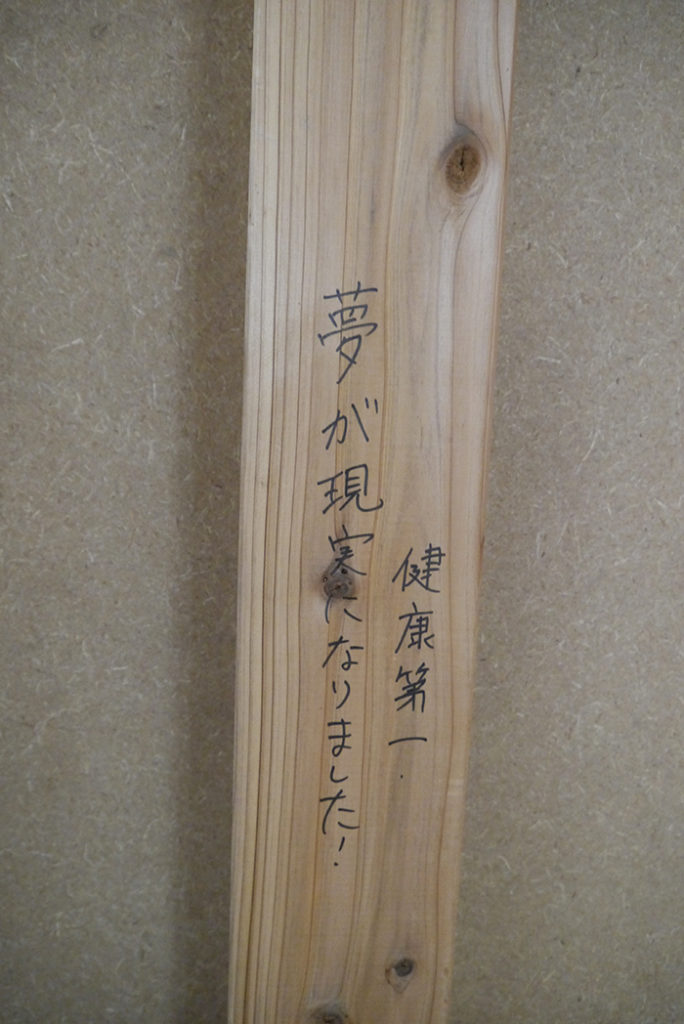 健康第一.
夢が現実になりました!